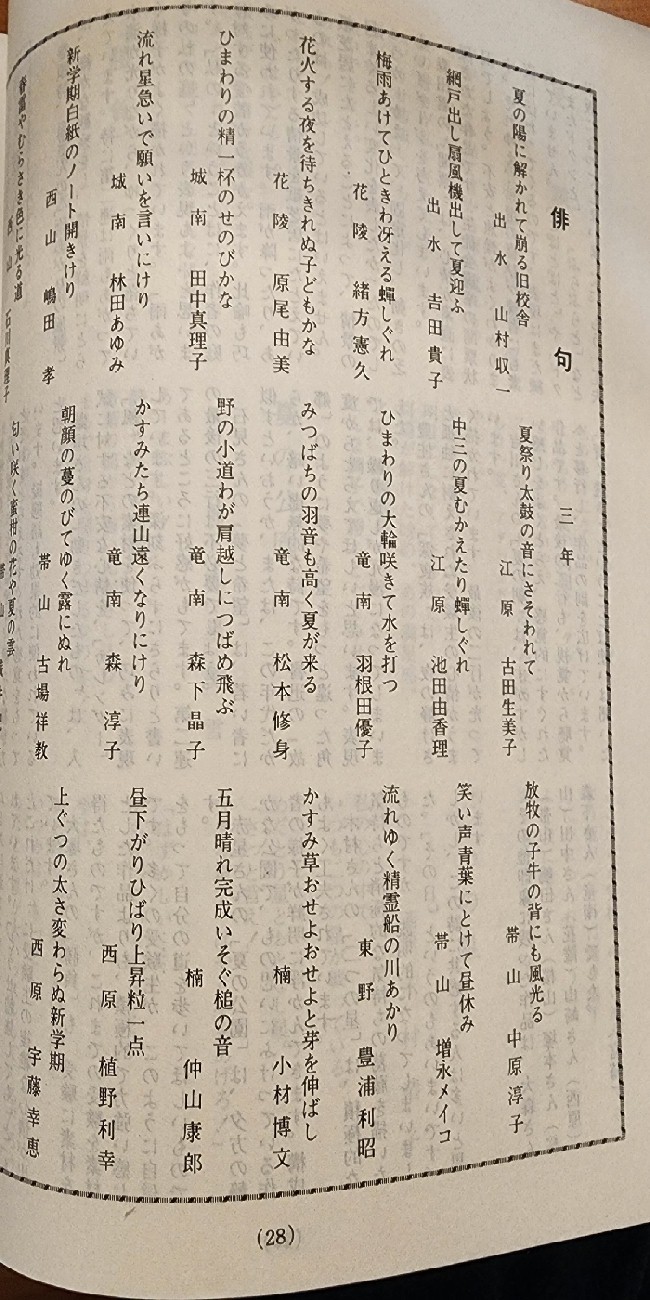 俳句
三年
夏の陽に解かれて崩る旧校舎
出水 山村収一
網戸出し扇風機出して夏迎ふ
出水 吉田貴子
梅雨あけてひときわ冴える蟬しぐれ
花陵 緒方憲久
花火する夜を待ちきれぬ子どもかな
花陵 原尾由美
ひまわりの精一杯のせのびかな
城南 田中真理子
流れ星急いで願いを言いにけり
城南 林田あゆみ
新学期白紙のノート開きけり
西山 嶋田孝
春雷やむらさき色に光る道
西山 石川真理子
夏祭り太鼓の音にさそわれて
江原 古田生美子
中三の夏むかえたり蟬しぐれ
江原 池田由香理
ひまわりの大輪咲きて水を打つ
竜南 羽根田優子
みつばちの羽音も高く夏が来る
竜南 松本修身
野の小道わが肩越しにつばめ飛ぶ
竜南 森下晶子
かすみたち連山遠くなりにけり
竜南 森淳子
朝顔の蔓のびてゆく露にぬれ
帯山 古場祥教
匂い咲く蜜柑の花や夏の雲
帯山
放牧の子牛の背にも風光る
帯山 中原淳子
笑い声青葉にとけて昼休み
帯山 増永メイコ
流れゆく精霊船の川あかり
東野 豊浦利昭
かすみ草おせよおせよと芽を伸ばし
楠 小材博文
五月晴れ完成いそぐ槌の音
楠 仲山康郎
昼下がりひばり上昇粒一点
西原 植野利幸
上ぐつの太さ変わらぬ新学期
西原 宇藤幸恵
(28)